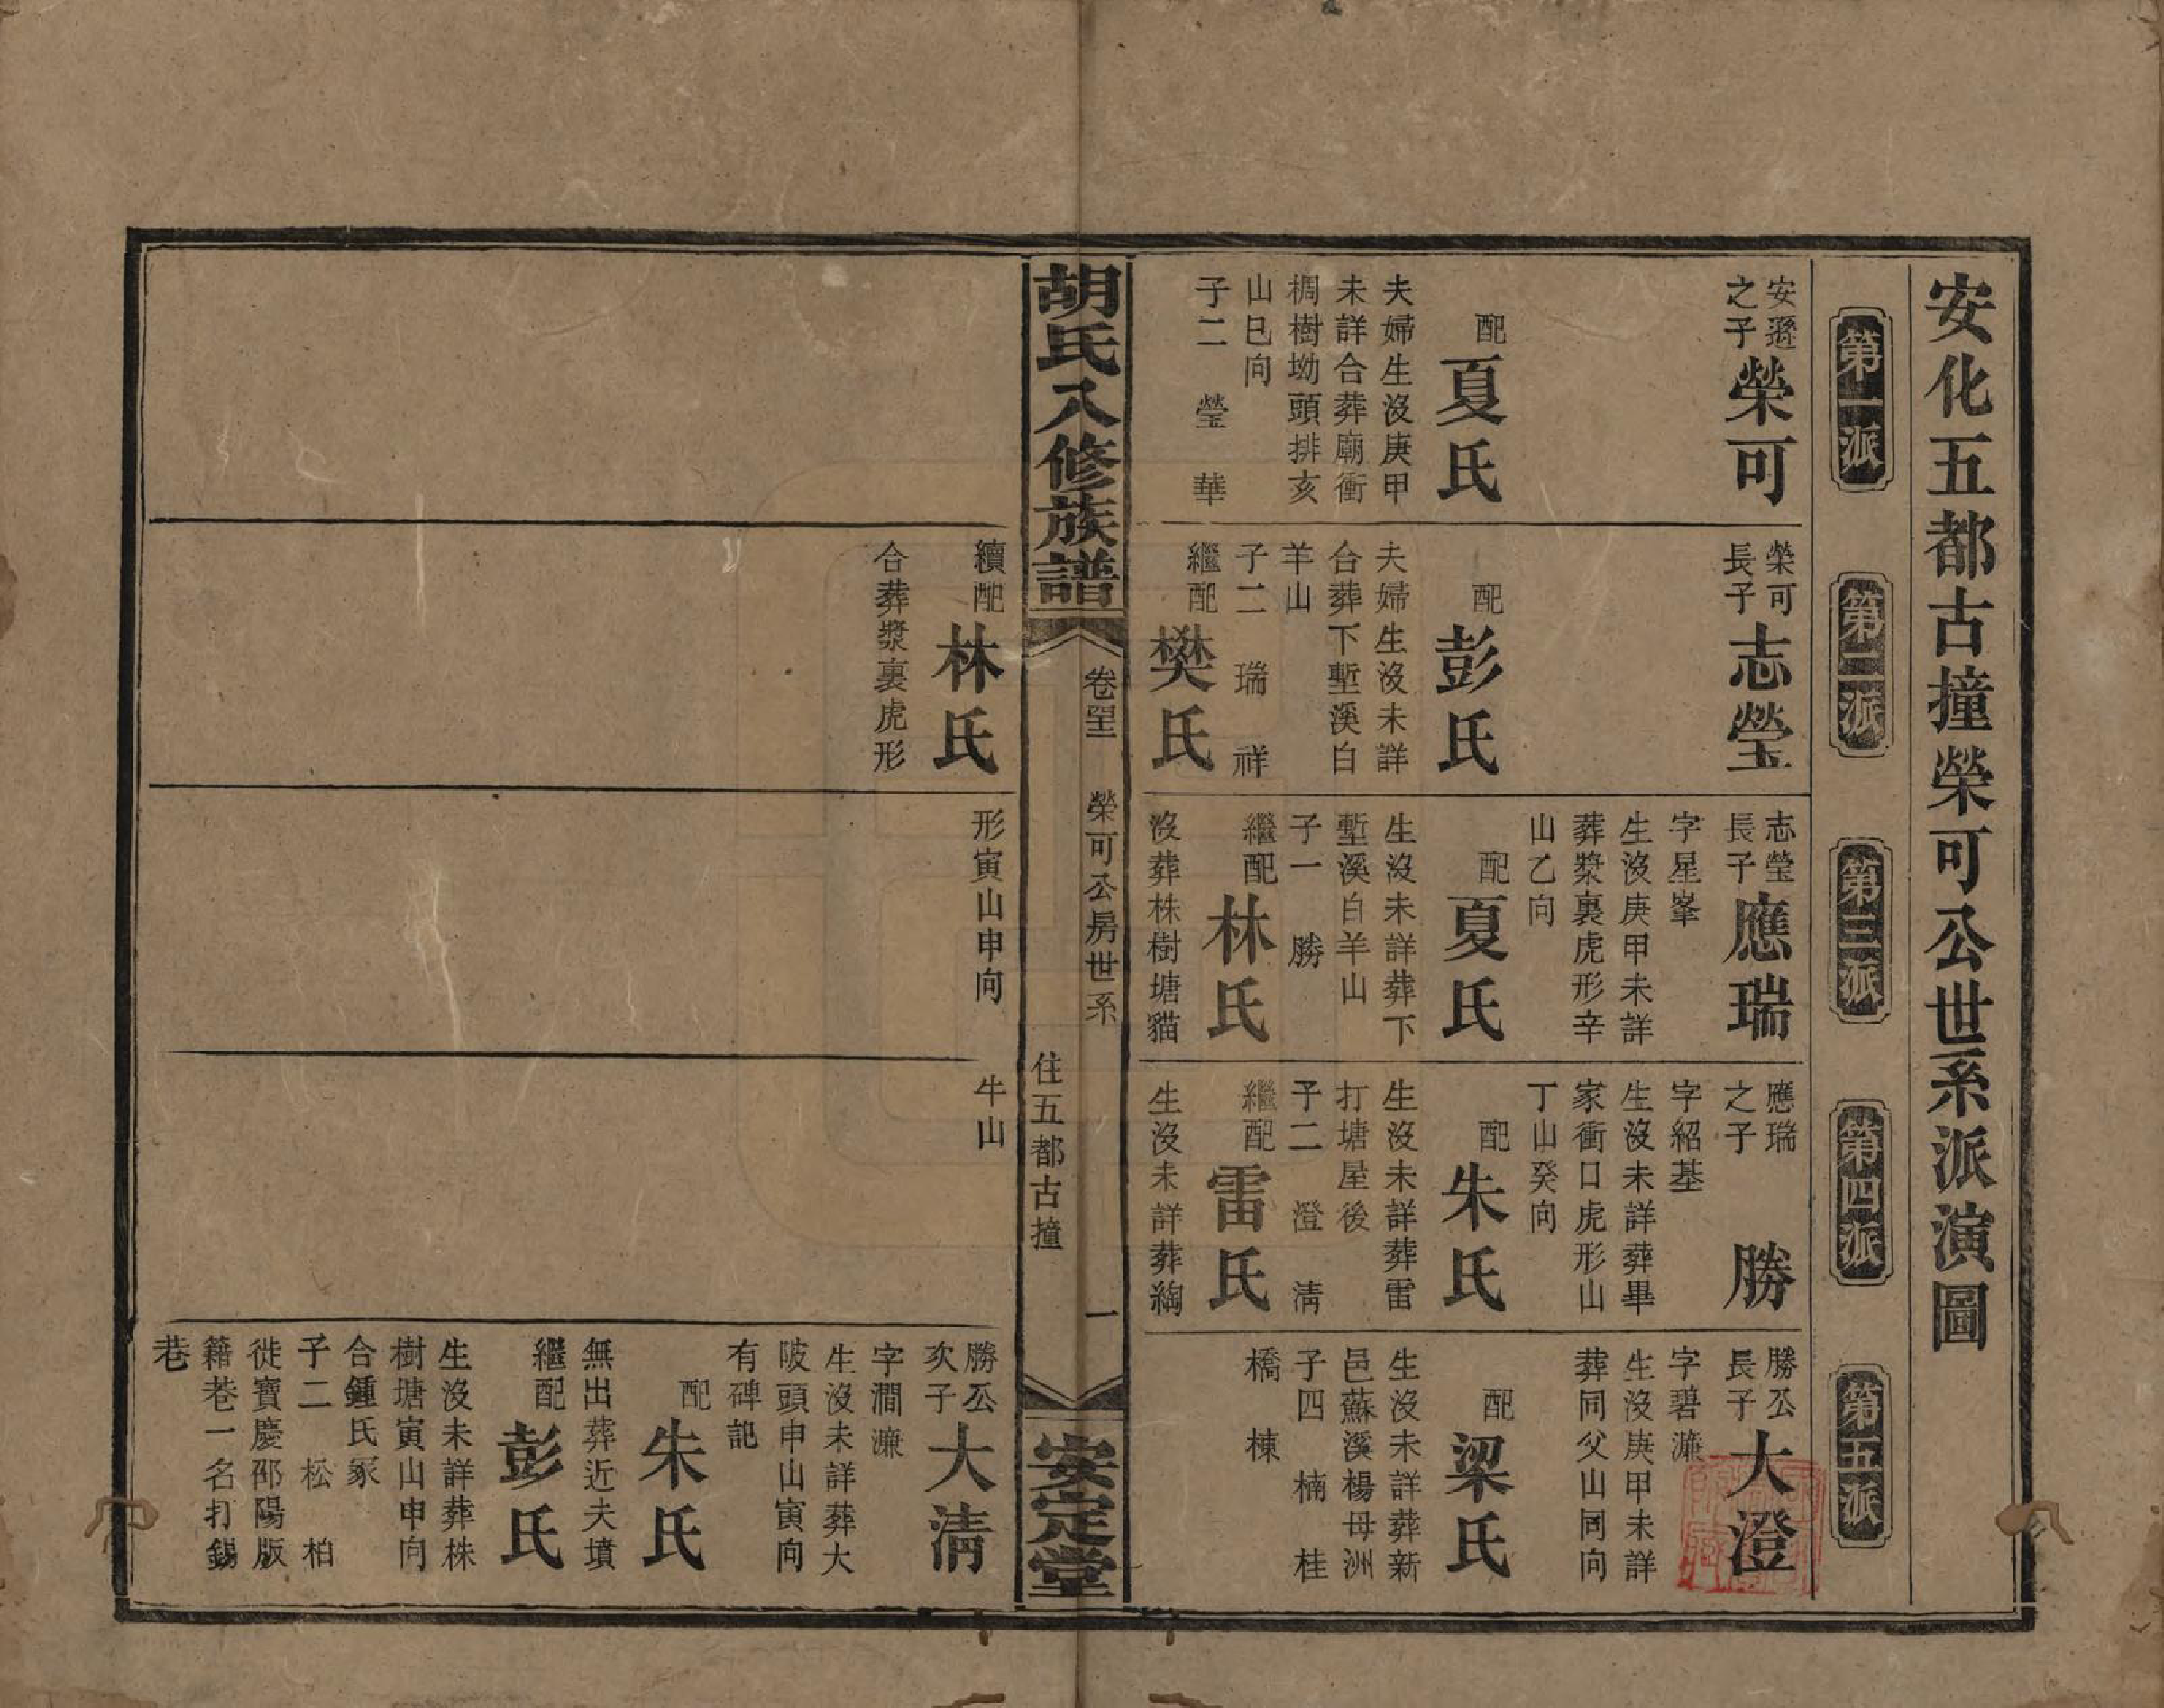 安化五都古撞榮可公世系派演圖
第一派
第二派
第三派
第四派
第五派
安遜
之子
榮可
配
夏氏
夫婦生沒庚甲
未詳合葬廟衝
椆樹坳頭排亥
山巳向
子二 瑩 華
榮可
長子
志瑩
配
彭氏
夫婦生沒未詳
合葬下塹溪白
羊山
子二 瑞 祥
繼配
樊氏
志瑩
長子
應瑞
字星峯
生沒庚甲未詳
葬漿裏虎形辛
山乙向
配
夏氏
生沒未詳葬下
塹溪白羊山
子一 勝
繼配
林氏
沒葬株樹塘貓
應瑞
之子
勝
字紹基
生沒未詳葬畢
家衝口虎形山
丁山癸向
配
朱氏
生沒未詳葬雷
打塘屋後
子二 澄 清
繼配
雷氏
生沒未詳葬綯
勝公
長子
大澄
字碧濂
生沒庚甲未詳
葬同父山同向
配
梁氏
生沒未詳葬新
邑蘇溪楊毋洲
子四 楠 桂
橋 棟
胡氏八修族譜
卷四十三
榮可公房世系
住五都古撞
一
安定堂
續配
林氏
合葬漿裏虎形
形寅山申向
牛山
勝公
次子
大清
字澗濂
生沒未詳葬大
陂頭申山寅向
有碑記
配
朱氏
無出葬近夫墳
繼配
彭氏
生沒未詳葬株
樹塘寅山申向
合鍾氏冢
子二 松 柏
徙寶慶邵陽版
籍巷一名打錫
巷